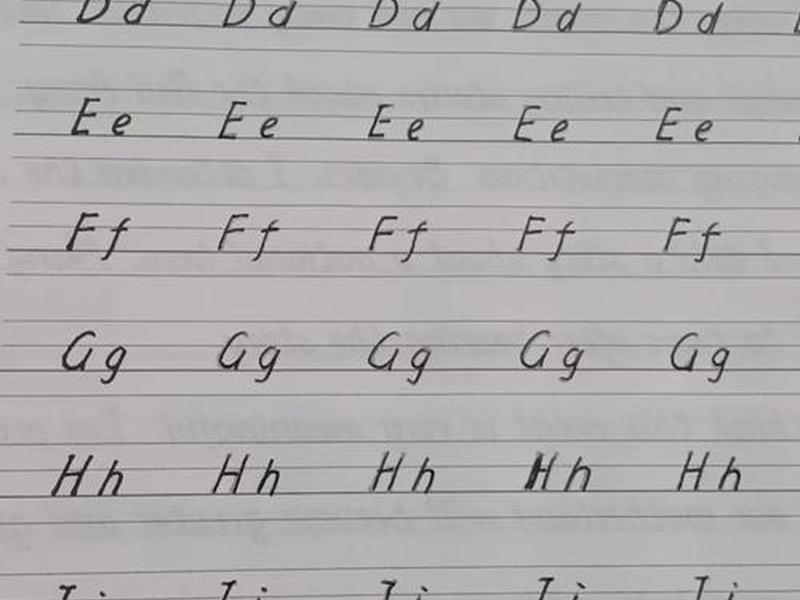 Dd Dd Dd Dd Dd
Ee Ee Ee Ee Ee
Ff Ff Ff Ff Ff
Gg Gg Gg Gg Gg
Hh Hh Hh Hh Hh
Ii Ii Ii Ii Ii